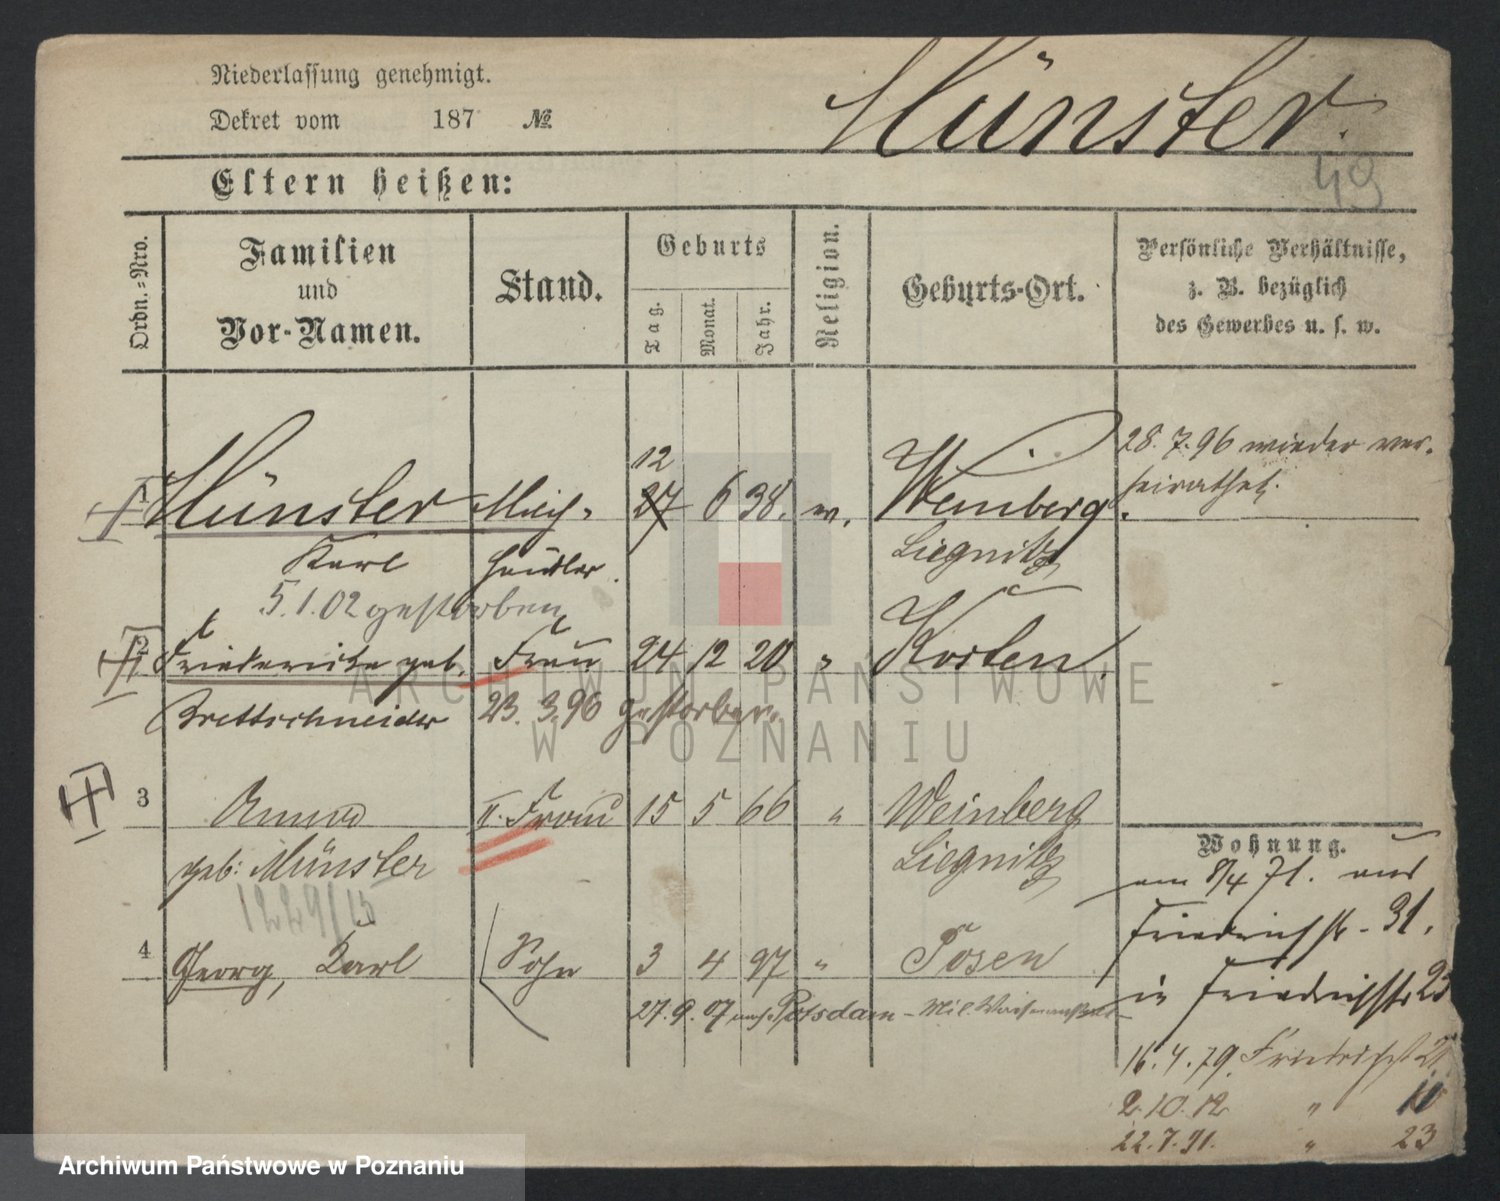 Niederlassung genehmigt.
Dekret vom 187 №
Münster.
49
Eltern heißen:
Ordn.=Nro.
Familien
und
Vor-Namen.
Stand.
Geburts
Tag.
Monat.
Jahr.
Religion.
Geburts-Ort.
Persönliche Verhältnisse,
z. B. bezüglich
des Gewerbes u. s. w.
28. 7. 96 wieder ver-
heirathet.
12
1 Münster Milch- 27 6 38. ev. Weinberg.
Karl händler. Liegnitz
5.1.02 gestorben
2 Friederike geb. Frau 24 12 20 " Kosten
Brettschneider 23. 3. 96 gestorben.
3 Anna II. Frau 15 5 66 " Weinberg
geb: Münster Liegnitz
1229/15
4 Georg, Karl Sohn 3 4 97 " Posen
27. 9. 07 nach Potsdam - Mil. Waisenhaus
Wohnung.
am 8/4 71. aus
Friedrichstr. 31.
in Friedrichstr 23
16. 4. 79. Friedrichst
2. 10. 12 "
22. 7. 91. " 23
ARCHIWUM PAŃSTWOWE
W POZNANIU
Archiwum Państwowe w Poznaniu